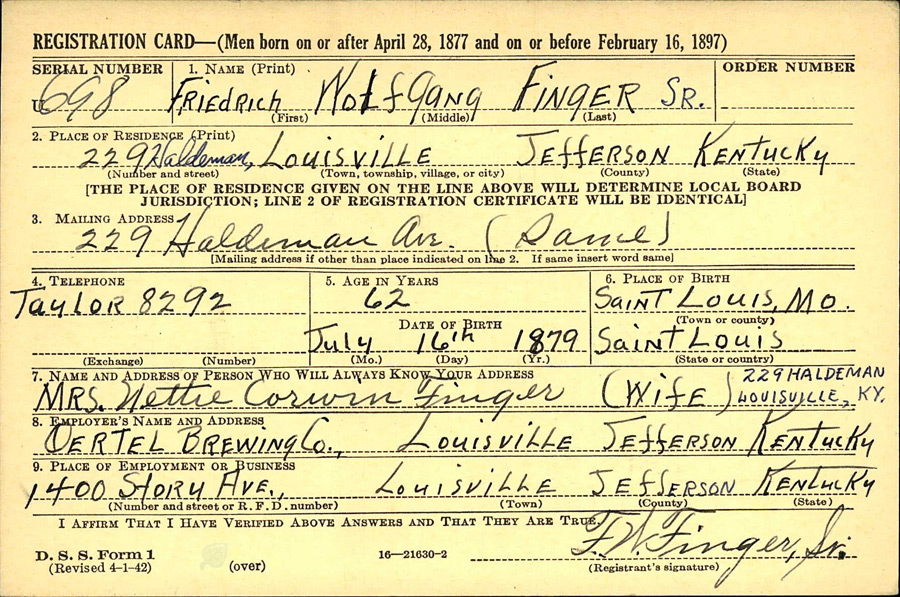 REGISTRATION CARD—(Men born on or after April 28, 1877 and on or before February 16, 1897)
SERIAL NUMBER 1. NAME (Print) ORDER NUMBER
U 698 FRIEDRICH WOLFGANG FINGER SR.
(First) (Middle) (Last)
2. PLACE OF RESIDENCE (Print)
229 Haldeman, LOUISVILLE JEFFERSON KENTUCKY
(Number and street) (Town, township, village, or city) (County) (State)
[THE PLACE OF RESIDENCE GIVEN ON THE LINE ABOVE WILL DETERMINE LOCAL BOARD
JURISDICTION; LINE 2 OF REGISTRATION CERTIFICATE WILL BE IDENTICAL]
3. MAILING ADDRESS
229 Haldeman Ave. (Same)
[Mailing address if other than place indicated on line 2. If same insert word same]
4. TELEPHONE 5. AGE IN YEARS 6. PLACE OF BIRTH
TAYLOR 8292 62 SAINT LOUIS, MO.
(Town or county)
DATE OF BIRTH
July 16th 1879 SAINT LOUIS
(Exchange) (Number) (Mo.) (Day) (Yr.) (State or country)
7. NAME AND ADDRESS OF PERSON WHO WILL ALWAYS KNOW YOUR ADDRESS 229 HALDEMAN
MRS. Nettie Corwin Finger (Wife) LOUISVILLE, KY.
8. EMPLOYER'S NAME AND ADDRESS
OERTEL BREWING Co., LOUISVILLE JEFFERSON KENTUCKY
9. PLACE OF EMPLOYMENT OR BUSINESS
1400 STORY AVE., LOUISVILLE JEFFERSON KENTUCKY
(Number and street or R. F. D. number) (Town) (County) (State)
I AFFIRM THAT I HAVE VERIFIED ABOVE ANSWERS AND THAT THEY ARE TRUE.
F. W. Finger, Sr.
D. S. S. Form 1 16—21630-2
(Revised 4-1-42) (over) (Registrant's signature)